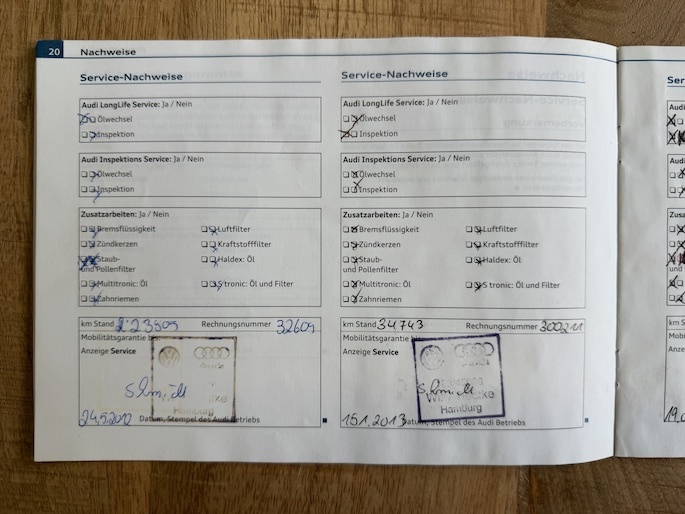 20 Nachweise
Service-Nachweise
Audi LongLife Service: Ja / Nein
Ölwechsel
Inspektion
Audi Inspektions Service: Ja / Nein
Ölwechsel
Inspektion
Zusatzarbeiten: Ja / Nein
Bremsflüssigkeit Luftfilter
Zündkerzen Kraftstofffilter
Staub- Haldex: Öl
und Pollenfilter
Multitronic: Öl S tronic: Öl und Filter
Zahnriemen
km Stand Rechnungsnummer 32609
Mobilitätsgarantie bis
Anzeige Service
Audi
Hamburg
24.5.2012 Datum, Stempel des Audi Betriebs
Service-Nachweise
Audi LongLife Service: Ja / Nein
Ölwechsel
Inspektion
Audi Inspektions Service: Ja / Nein
Ölwechsel
Inspektion
Zusatzarbeiten: Ja / Nein
Bremsflüssigkeit Luftfilter
Zündkerzen Kraftstofffilter
Staub- Haldex: Öl
und Pollenfilter
Multitronic: Öl S tronic: Öl und Filter
Zahnriemen
km Stand 34743 Rechnungsnummer 300211
Mobilitätsgarantie bis
Anzeige Service
Hamburg
15.1.2013 Datum, Stempel des Audi Betriebs